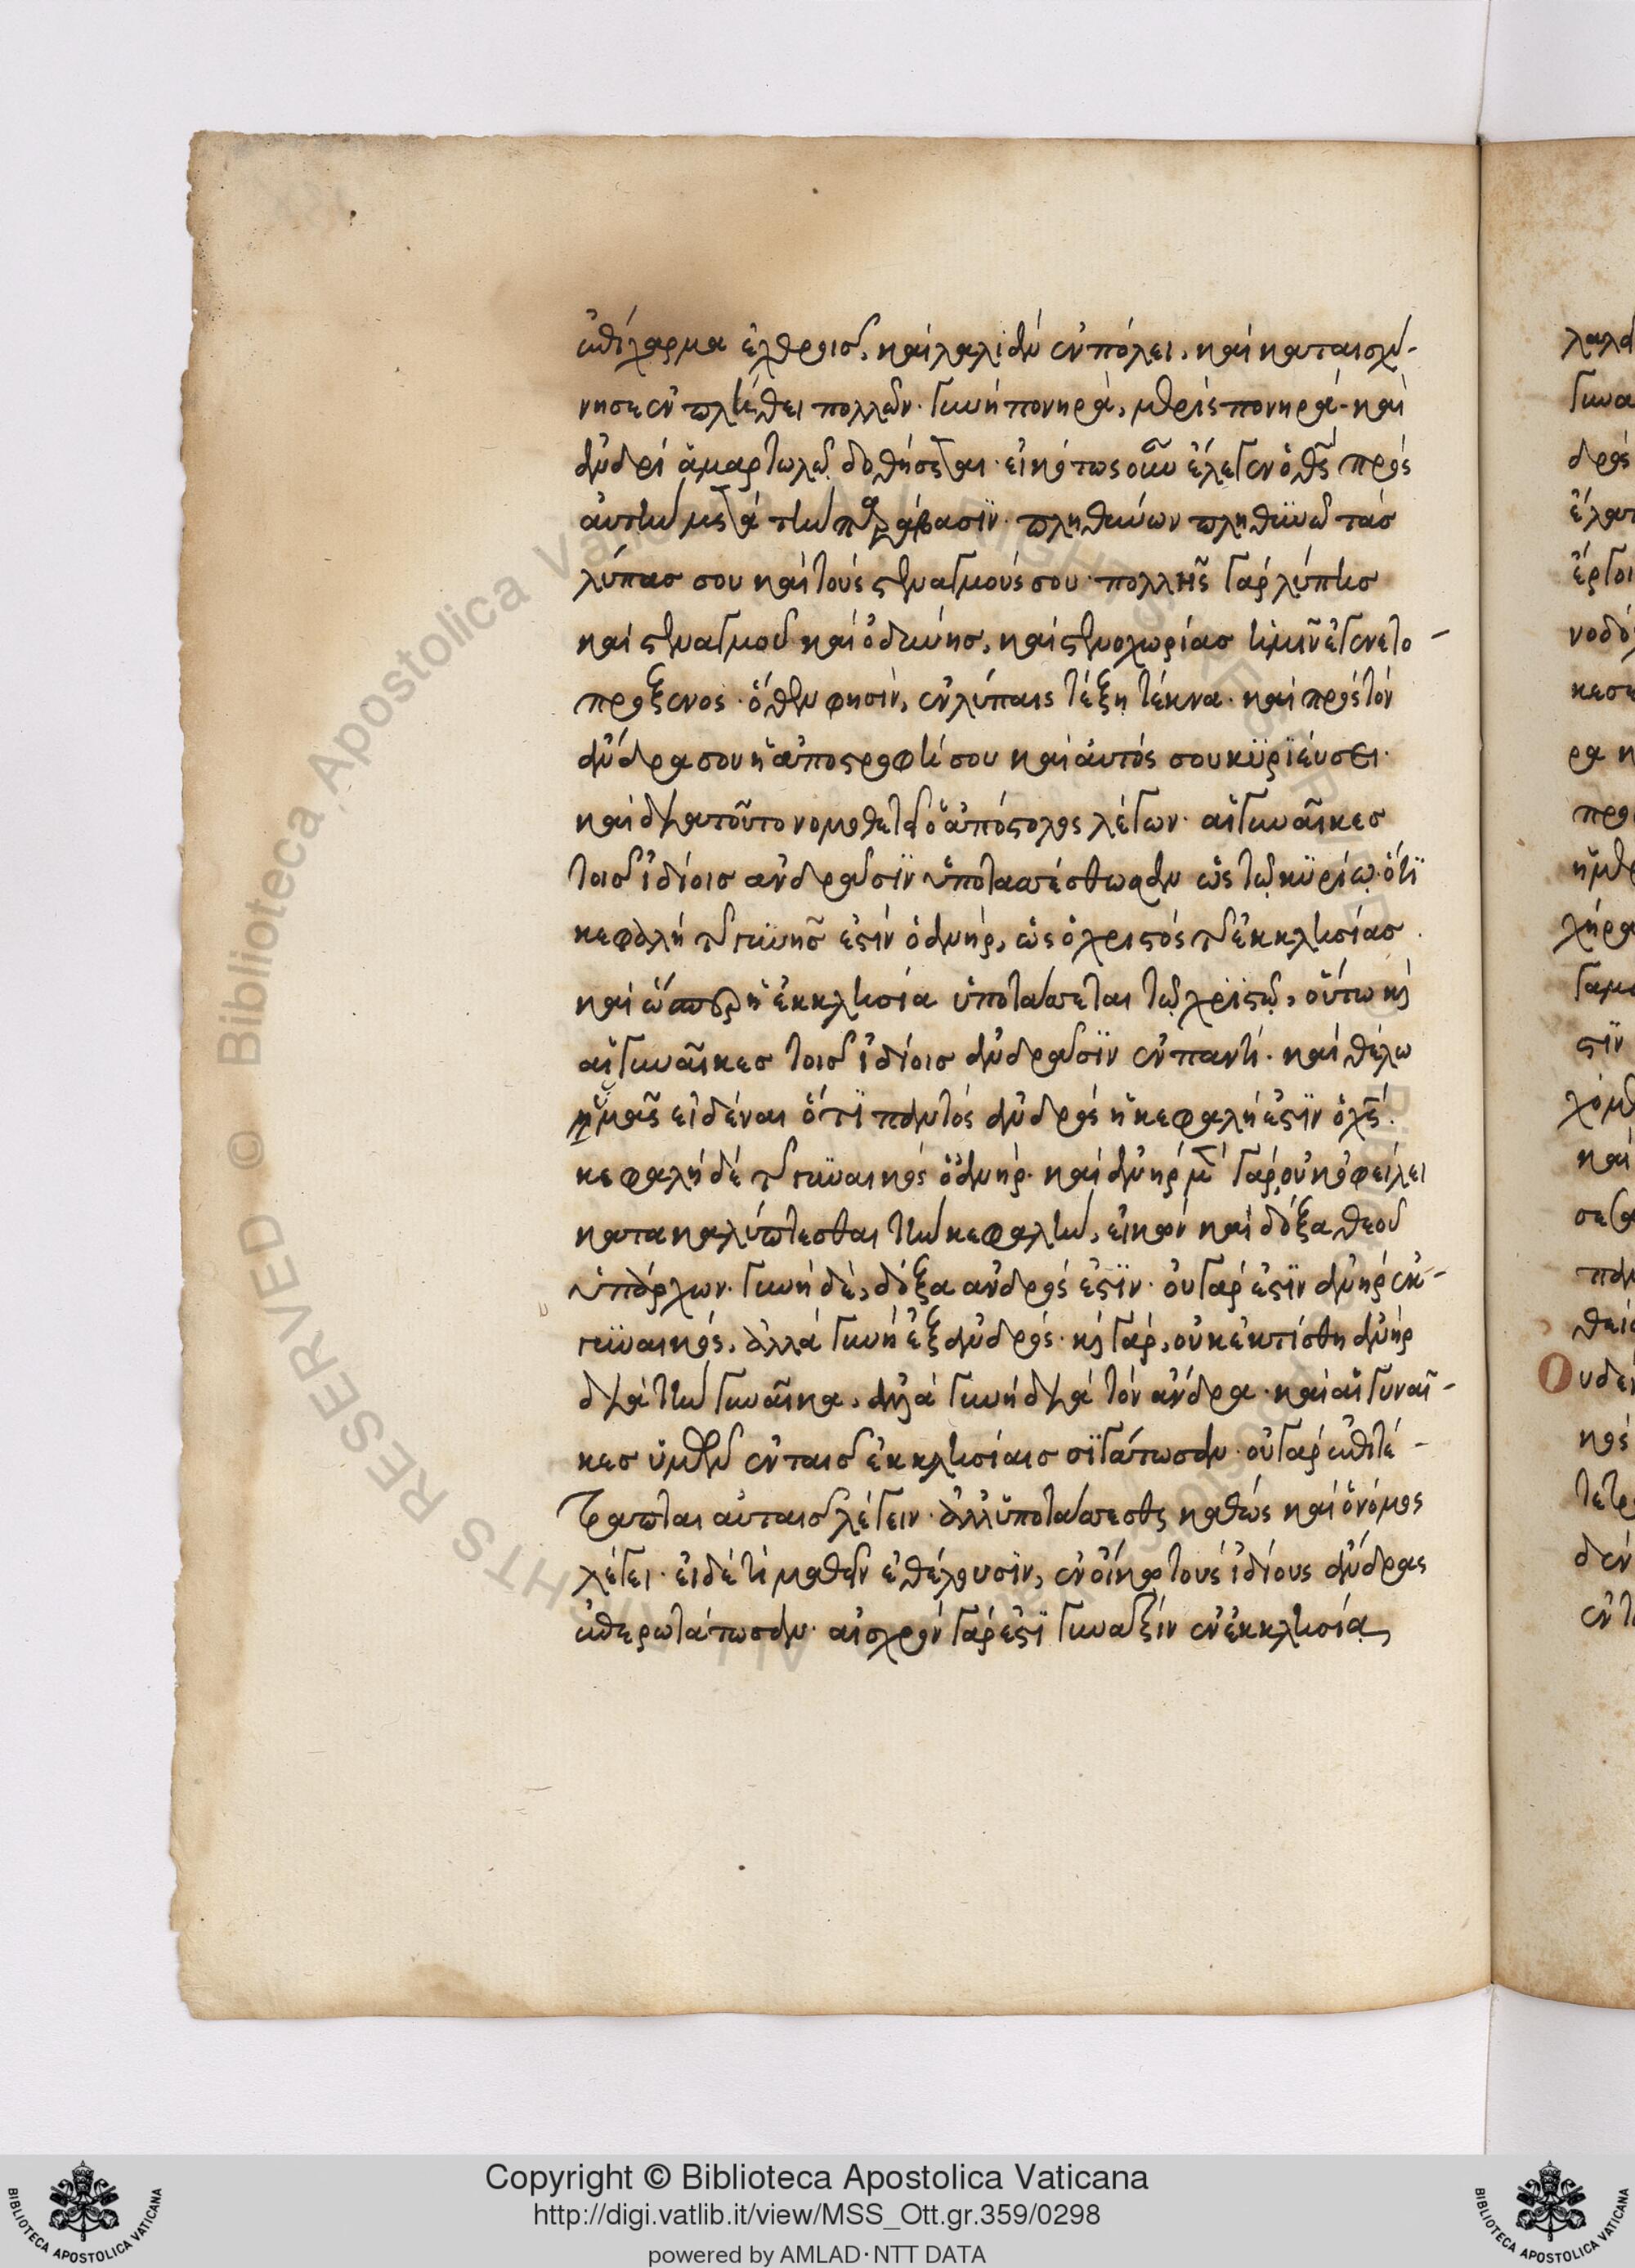 ἐπίχαρμα ἐχθροῖς, καὶ λαλιὰν ἐν πόλει, καὶ καταισχύ-
νησε ἐν πλήθει πολλῶν· γυνὴ πονηρὰ, μερὶς πονηρά· καὶ
ἀνδρὶ ἁμαρτωλῷ δοθήσεται· εἰκότως οὖν ἔλεγεν ὁ θς πρὸς
αὐτὴν μετὰ τὴν παράβασϊν· πληθύνων πληθϋνῶ τὰς
λύπας σου καὶ τοὺς στεναγμούς σου· πολλῆς γὰρ λύπης
καὶ στεναγμοῦ καὶ ὀδύνης, καὶ στενοχωρίας ἡμῖν ἐγένετο
πρόξενος· ὅθεν φησὶν, ἐν λύπαις τέξῃ τέκνα· καὶ πρὸς τὸν
ἄνδρα σου ἡ ἀποστροφή σου καὶ αὐτός σου κϋρϊεύσει·
καὶ διὰ τοῦτο νομοθετεῖ ὁ ἀπόστολος λέγων· αἱ γυναῖκες
τοῖς ἰδίοις ἀνδράσϊν ὑποτασσέσθωσαν ὡς τῷ κϋρίῳ· ὅτϊ
κεφαλὴ τῆς γϋνῆς ἐστὶν ὁ ἀνὴρ, ὡς ὁ χριστὸς τῆς ἐκκλησίας
καὶ ὥσπερ ἡ ἐκκλησία ὑποτάσσεται τῷ χρϊστῷ, οὕτω κὶ
αἱ γυναῖκες τοῖς ἰδίοις ἀνδράσϊν ἐν παντί· καὶ θέλω
ἡμᾶς εἰδέναι ὅτϊ παντὸς ἀνδρὸς ἡ κεφαλὴ ἐστϊν ὁ χς·
κεφαλὴ δὲ τῆς γϋναικὸς ὁ ἀνήρ· καὶ ἀνὴρ μὲν γὰρ οὐκ ὀφείλει
κατακαλύπτεσθαι τὴν κεφαλὴν, εἰκὼν καὶ δόξα θεοῦ
ὑπάρχων· γυνὴ δὲ, δόξα ἀνδρός ἐστϊν· οὐ γάρ ἐστϊν ἀνὴρ ἐκ
γϋναικὸς, ἀλλὰ γυνὴ ἐξ ἀνδρός· κὶ γὰρ, οὐκ ἐκτίσθη ἀνὴρ
διὰ τὴν γυναῖκα, ἀλλὰ γυνὴ διὰ τὸν ἄνδρα· καὶ αἱ γυναῖ-
κες ὑμῶν ἐν ταῖς ἐκκλησίαις σϊγάτωσαν· οὐ γὰρ ἐπιτέ-
τραπται αὐταῖς λέγειν· ἀλλ' ὑποτάσσεσθαι καθὼς καὶ ὁ νόμος
λέγει· εἰ δέ τι μαθεῖν ἐθέλουσϊν, ἐν οἴκῳ τοὺς ἰδίους ἄνδρας
ἐπερωτάτωσαν· αἰσχρὸν γάρ ἐστϊ γυναιξὶν ἐν ἐκκλησίᾳ